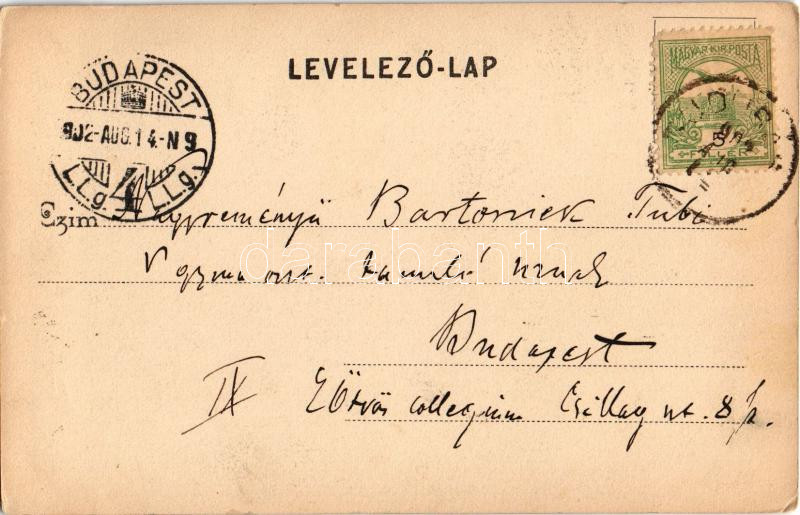 LEVELEZŐ-LAP
MAGYAR KIR. POSTA
5
FILLÉR
BUDAPEST
902-AUG.14.-N9
I.L.g. 4 I.L.g.
Czim Nagyreményű Bartoniek Tubi
V gymn oszt. tanuló urnak
Budapest
IX Eötvös collegium Csillag ut. 8 sz.
darabanth